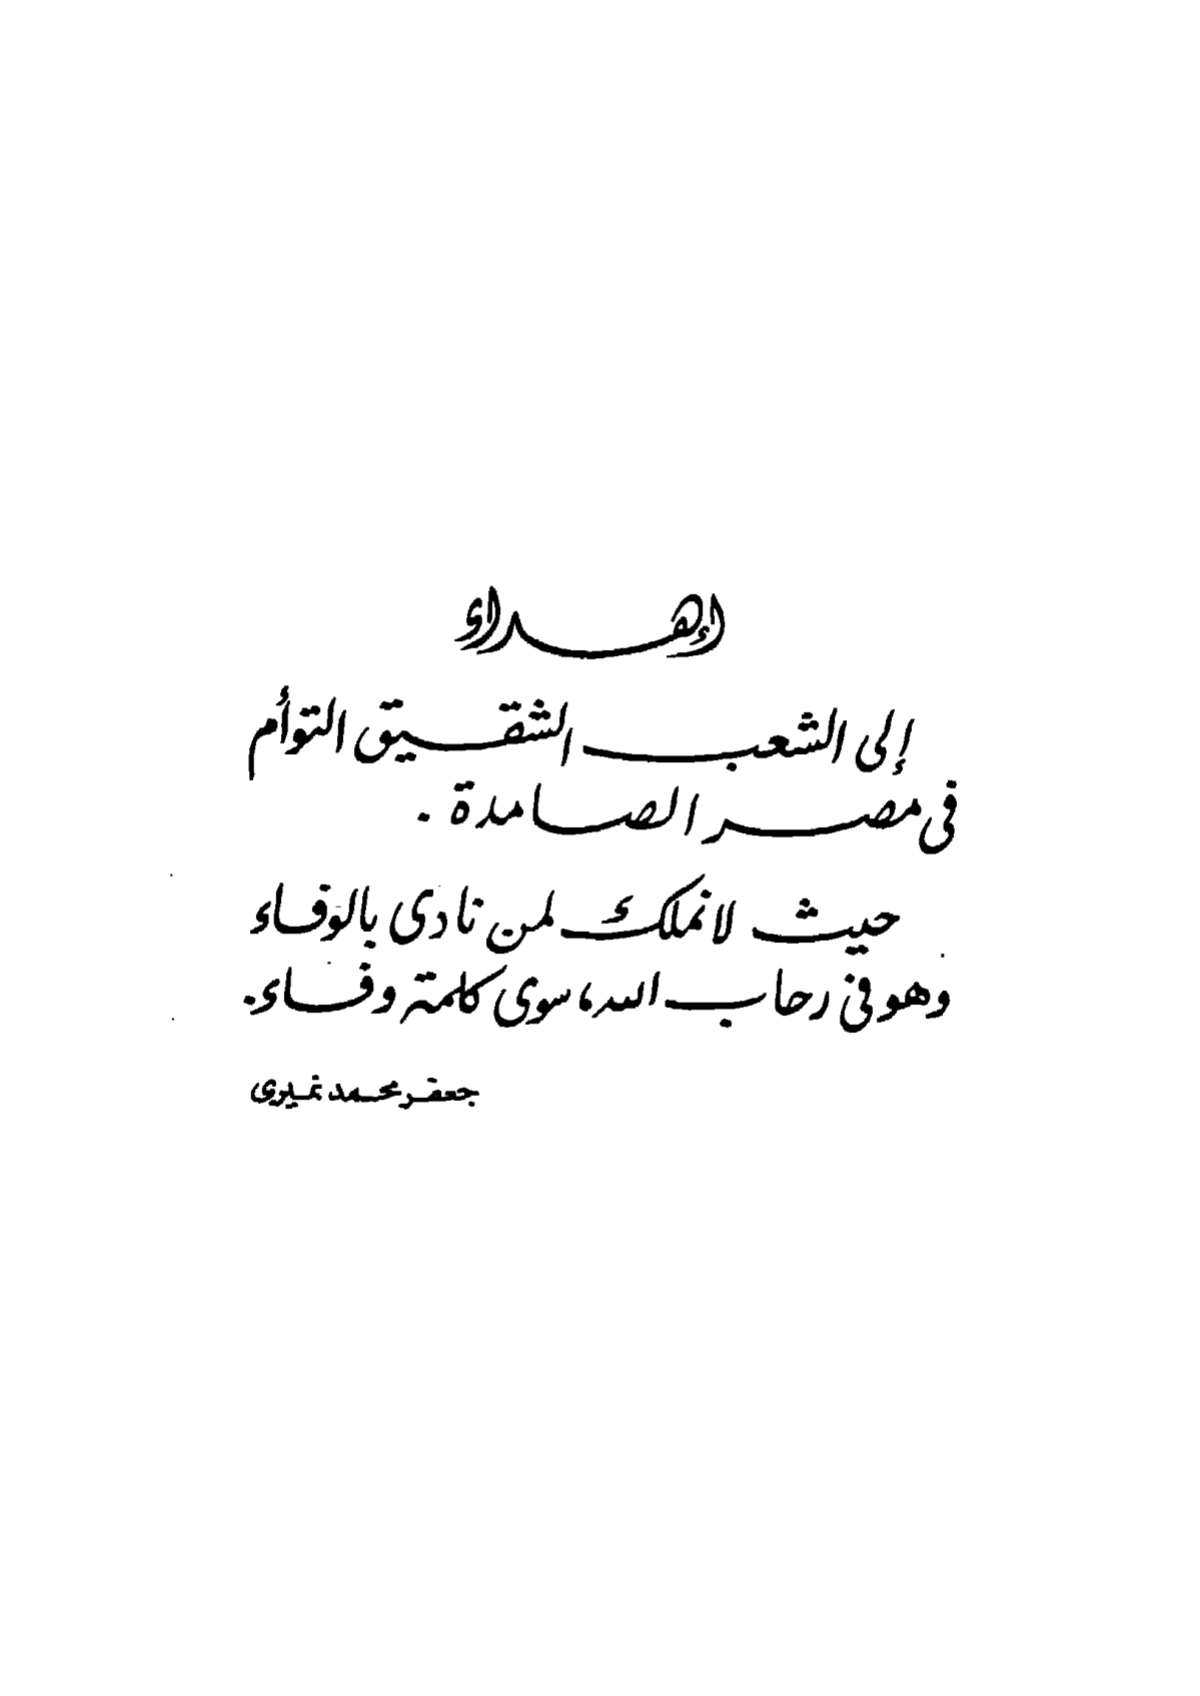 إهداء
إلى الشعب الشقيق التوأم
فى مصر الصامدة .
حيث لا نملك لمن نادى بالوفاء
وهو فى رحاب الله، سوى كلمة وفاء.
جعفر محمد نميرى